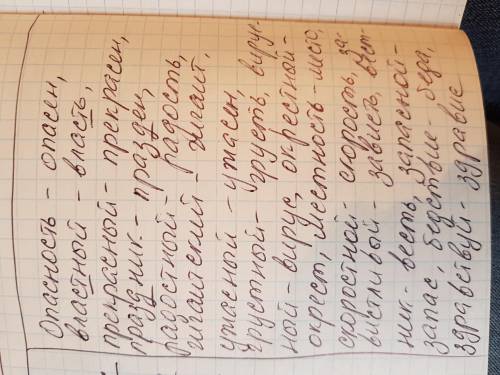 Опасность - опасен,
властный - власть,
прекрасный - прекрасен,
праздник - празден,
радостный - радость,
гигантский - гигант,
ужасный - ужасен,
грустный - грусть, вирус-
ный - вирус, окрестной -
окрест, местность - место,
скоростной - скорость, за-
вистливый - зависть, вест-
ник - весть, запасной -
запас, бедствие - беда,
здравствуй - здравие